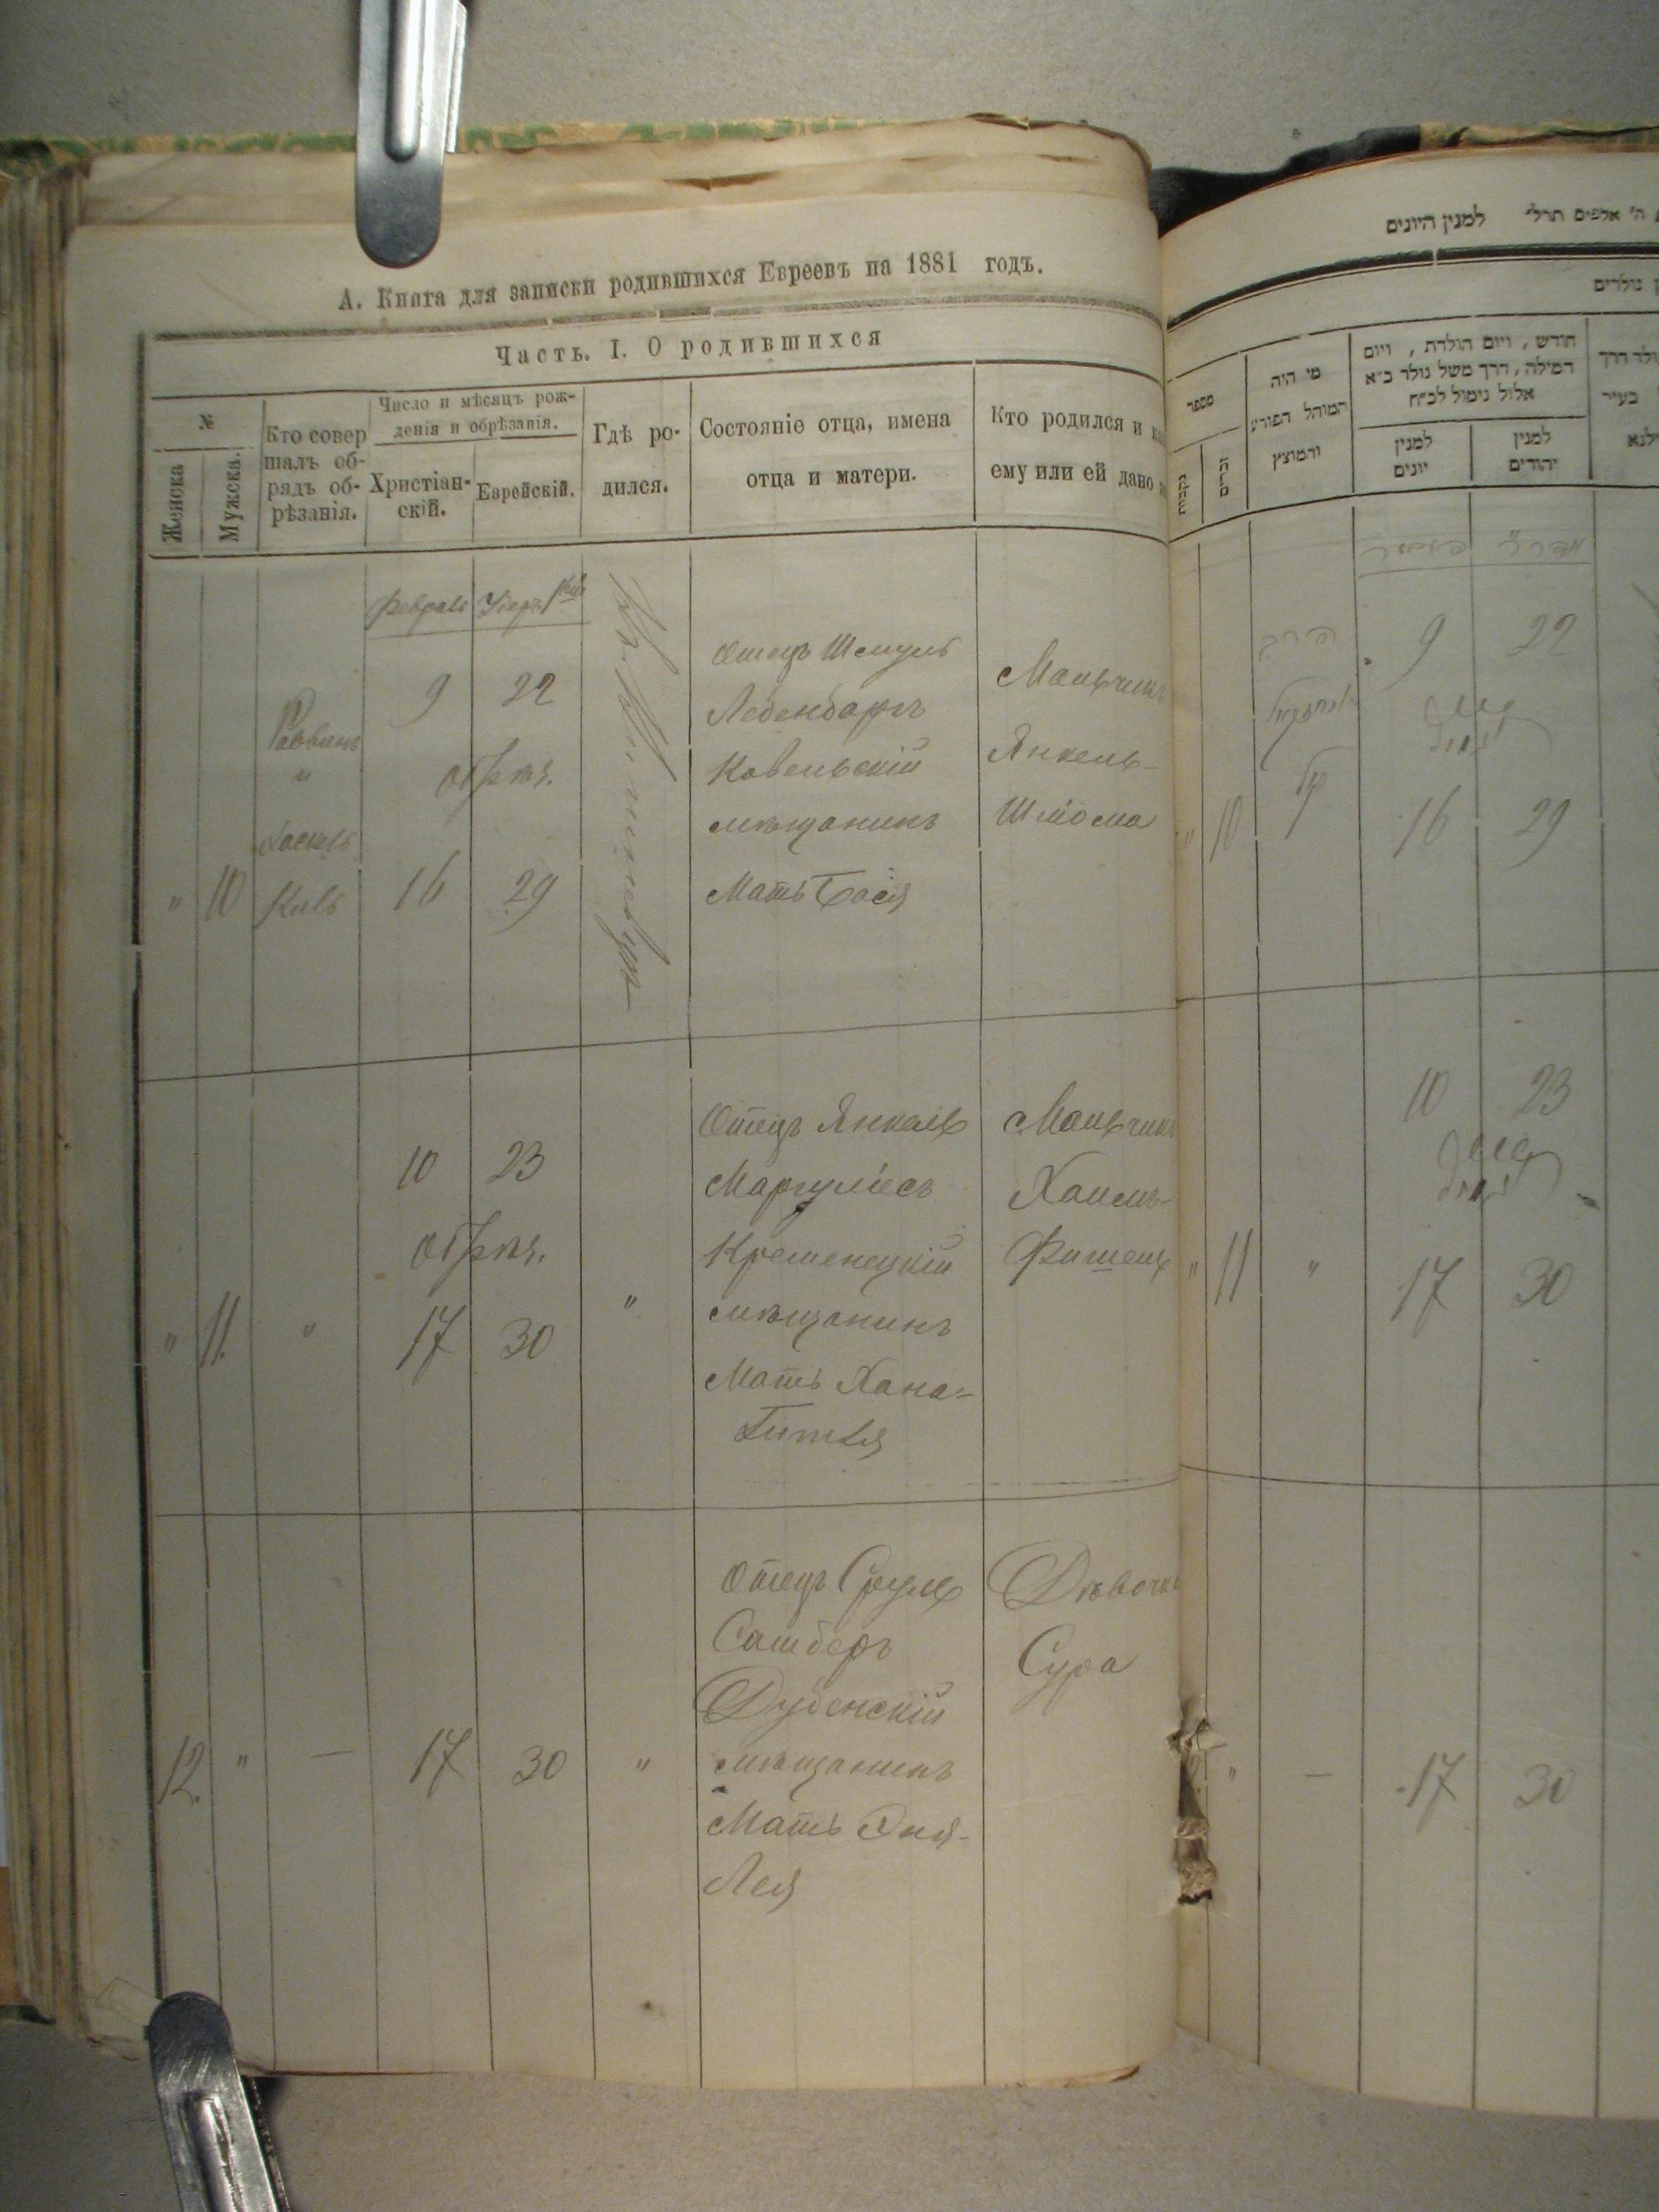 А. Книга для записки родившихся Евреевъ на 1881 годъ.
Часть. I. О родившихся
№
Женска
Мужска.
Кто совер
шалъ об-
рядъ об-
рѣзанія.
Число и мѣсяцъ рож-
денія и обрѣзанія.
Христіан-
скій.
Еврейскій.
Гдѣ ро-
дился.
Состояніе отца, имена
отца и матери.
Кто родился и
ему или ей дано
Февраль
9 22
Раввинъ
"
обрѣз.
" 10 16 29
Отецъ Шмуль
Ковельскій
мѣщанинъ
Мать Бася
Мальчикъ
Янкель-
Шлома
10 23
обрѣз.
" 11. " 17 30 "
Отецъ Янкель
Маргулiесъ
Кременецкій
мѣщанинъ
Мать Хана-
Гитля
Мальчикъ
Хаимъ-
Фишель
12. " — 17 30 "
Отецъ Сруль
Сашберъ
Дубенскій
мѣщанинъ
Мать
Лея
Дѣвочка
Сура
ה' אלפים תרל" למנין היונים
נולדים
מספר
נקבות
זכרים
מי היה
המוהל הפורע
והמוצץ
חודש, ויום הולדת, ויום
המילה, דרך משל נולד כ״א
אלול נימול לכ״ח
למנין
יונים
למנין
יהודים
ולד דרך
בעיר
וילנא
9 22
" 10 16 29
10 23
" 11 " 17 30
" — 17 30